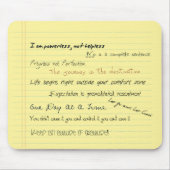 I am powerless, not helpless
No is a complete sentence
Progress not Perfection
The journey is the destination
Life begins right outside your comfort zone
Expectation is premeditated resentment
One Day at a Time
You didn't cause it, you can't control it, you can't cure it